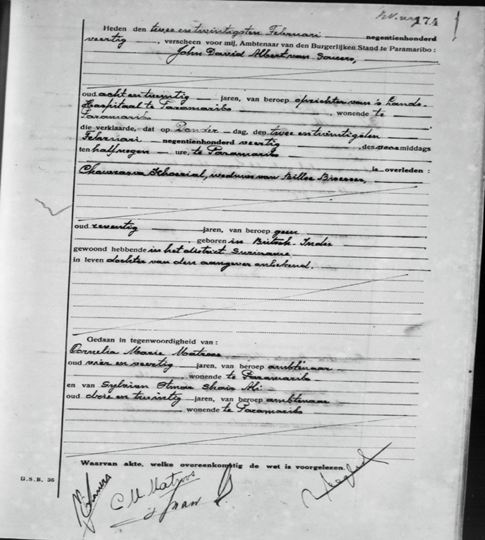 174
Heden den twee en twintigsten Februari negentienhonderd
veertig, verscheen voor mij, Ambtenaar van den Burgerlijken Stand te Paramaribo:
John David Albert van
oud acht en twintig jaren, van beroep oppasser van 's Lands-
Hospitaal te Paramaribo, wonende te
Paramaribo
die verklaarde, dat op Donder dag, den twee en twintigsten
Februari negentienhonderd veertig, des voormiddags
ten half negen ure, te Paramaribo
is overleden:
weduwe van
oud zeventig jaren, van beroep geen
, geboren in Britsch-Indie
gewoond hebbende in het district Suriname
in leven dochter van den aangever onbekend.
Gedaan in tegenwoordigheid van:
Cornelia Marie
oud vier en veertig jaren, van beroep ambtenaar
, wonende te Paramaribo
en van Sylvian
oud drie en twintig jaren, van beroep ambtenaar
, wonende te Paramaribo
Waarvan akte, welke overeenkomstig de wet is voorgelezen.
D.S.R. 36
C M Matroos